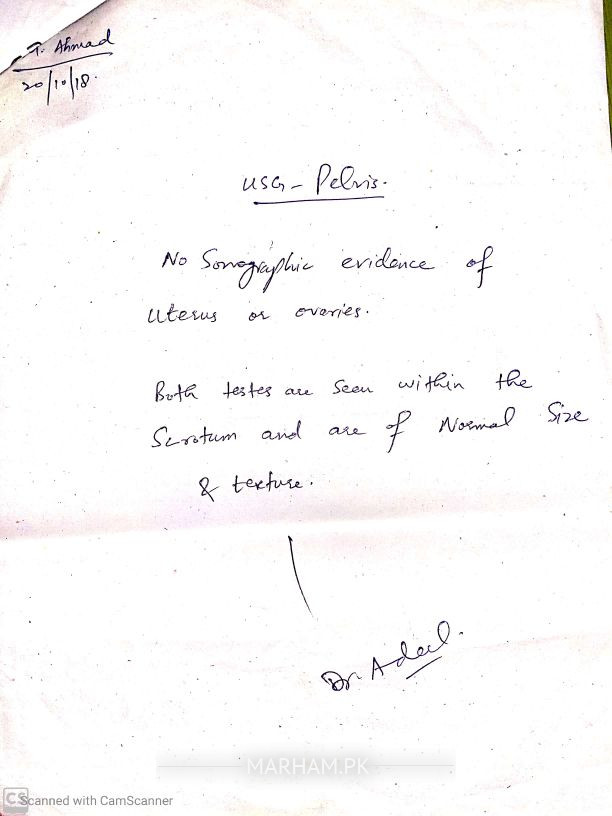 T. Ahmad
20/10/18.
USG - Pelvis.
No Sonographic evidence of
uterus or ovaries.
Both testes are seen within the
Scrotum and are of Normal Size
& texture.
Dr. Adeel.
MARHAM.PK
CS Scanned with CamScanner